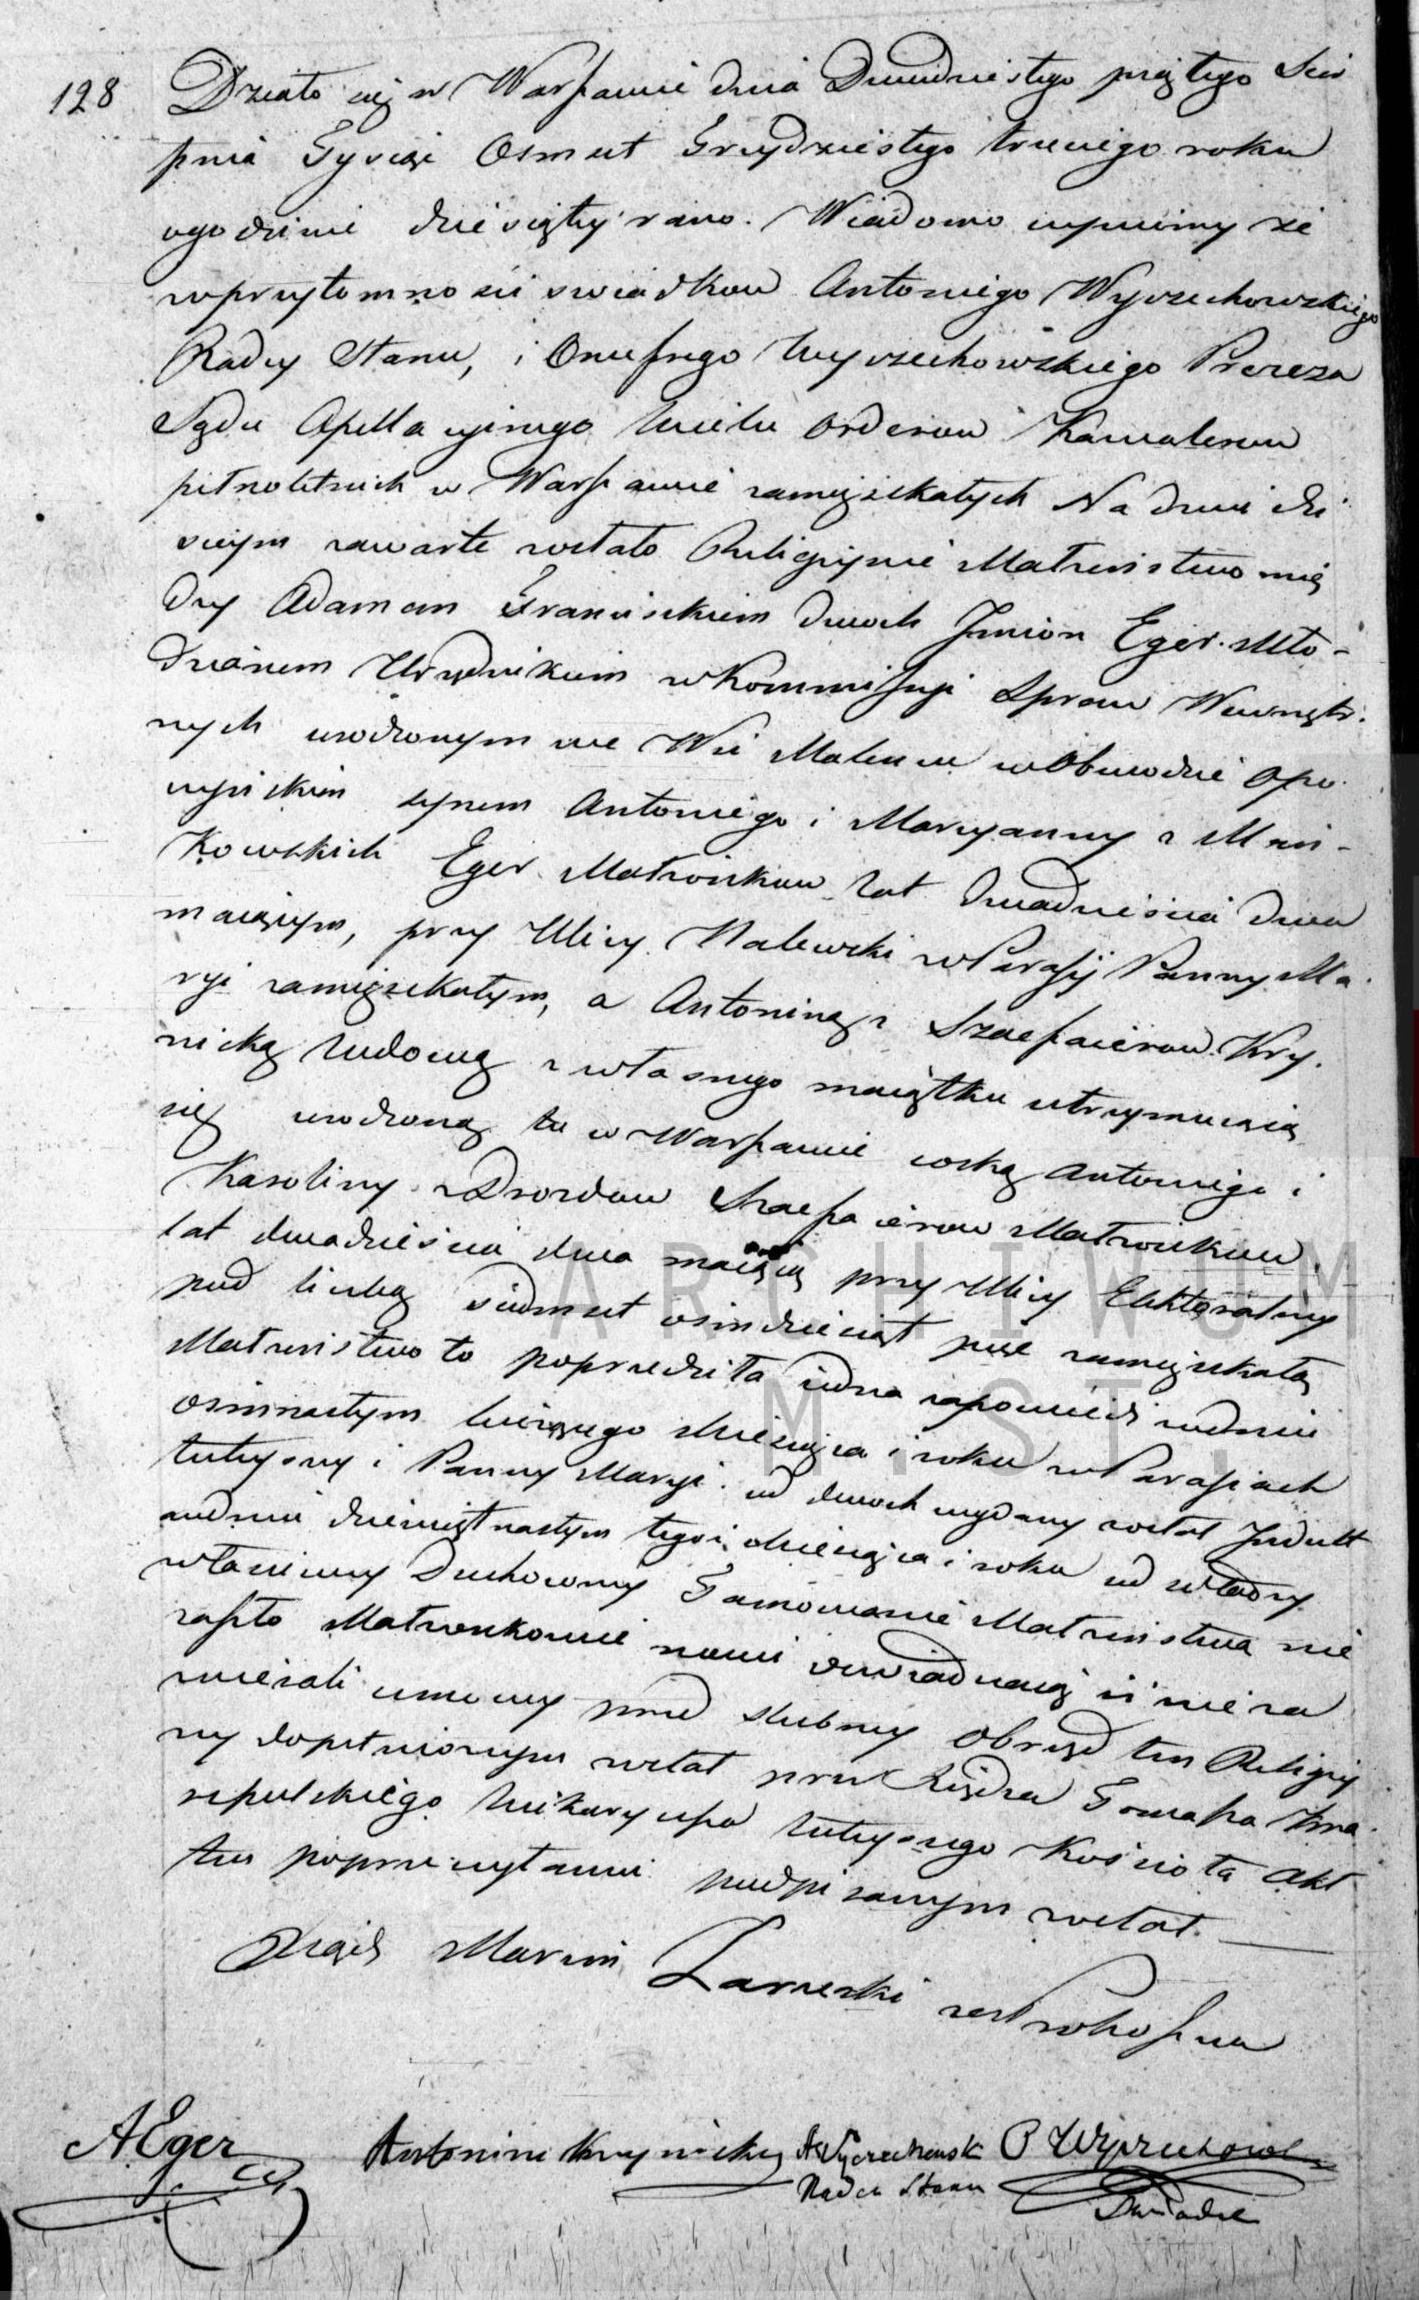 128 Działo się w Warszawie dnia Dwudziestego piątego Sier
pnia Tysiąc Osmset Trzydziestego trzeciego roku
ogodzinie dziesiątey rano. Wiadomo czyniemy że
wprzytomności swiadkow Antoniego Wyczechowskiego
Radcy Stanu, i Onufrego Wyczechowskiego Prezesa
Sądu Apellacyinego wielu orderow Kawalerow
pełnoletnich w Warszawie zamięszkałych Na dniu dzi
sieyszym zawarte zostało Religiynie Małżeństwo mię
dzy Adamem Franciszkiem dwoch Jmion Eger Mło-
dzianem Urzędnikiem w Kommissyi Spraw Wewnętrz.
nych urodzonym we Wsi w Obwodzie Opo
czyńskim synem Antoniego i Maryanny z
kowskich Eger Małżonkow lat dwadzieścia dwa
maiącym, przy Ulicy Nalewki w Parafij Panny Ma
ryi zamięszkałym, a Antoniną z Kry.
nicką wdową z własnego maiątku utrzymuiącą
się urodzoną tu w Warszawie corką Antoniego i
Karoliny z Drozdow Małżonkow
lat dwadzieścia dwa maiącą przy Ulicy Elektoralney
pod liczbą siedmset ośmdziesiąt pięć zamięszkałą
Małżeństwo to poprzedziła iedna zapowiedź w dniu
osimnastym bieżącego Miesiąca i roku w Parafiach
tuteyszey i Panny Maryi. od dwoch wydany został Jndult
w dniu dziewiętnastym tegoż Miesiąca i roku od władzy
właściwey Duchowney Tamowanie Małżeństwa nie
zaszło Małżonkowie nowi oświadczaią iż nie za
wierali umowy przed ślubney Obrząd ten Religiy
ny dopełnionym został przez Xiędza Tomasza
Wikaryusza tuteyszego Kościoła Akt
ten po przeczytaniu podpisanym został.
Xiądz Marcin Zarzecki zast Proboszcza
AEger Antonina Krynicka AWyczechowski O Wyczechowski
Radca Stanu Swiadek
ARCHIWUM
M. ST.